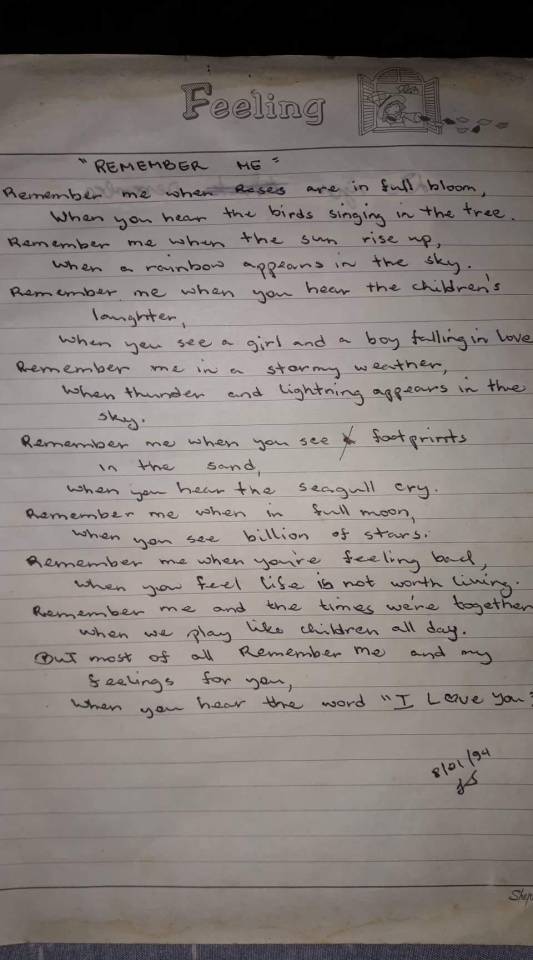 Feeling
"REMEMBER ME"
Remember me when Roses are in full bloom,
When you hear the birds singing in the tree.
Remember me when the sun rise up,
When a rainbow appears in the sky.
Remember me when you hear the children's
laughter,
When you see a girl and a boy falling in love
Remember me in a stormy weather,
When thunder and lightning appears in the
sky.
Remember me when you see footprints
in the sand,
When you hear the seagull cry.
Remember me when in full moon,
When you see billion of stars.
Remember me when you're feeling bad,
When you feel life is not worth living.
Remember me and the times we're together
When we play like children all day.
But most of all Remember me and my
feelings for you,
When you hear the word "I Love You"
8/01/94